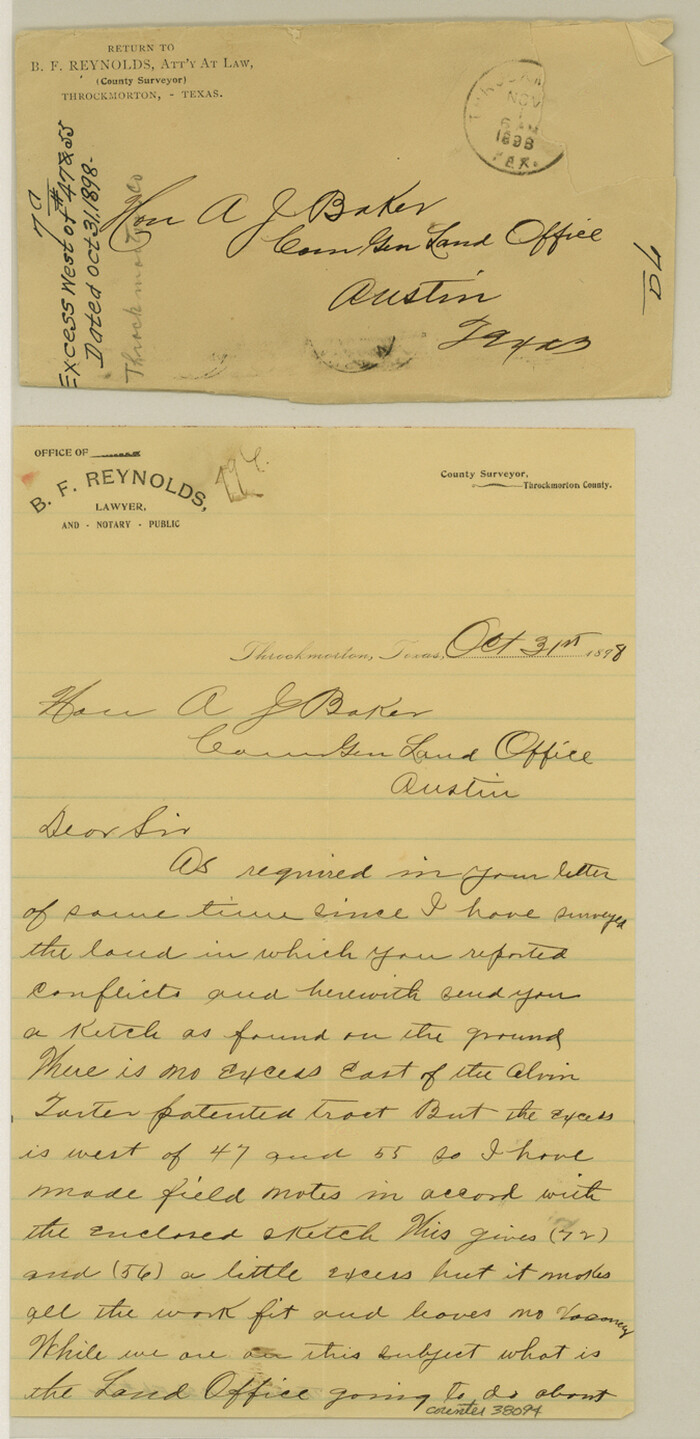 RETURN TO
B. F. REYNOLDS, ATT'Y AT LAW,
(County Surveyor)
THROCKMORTON, - TEXAS.
NOV
6 AM
1898
TEX.
7a
Excess West of #47 & 55
Dated Oct 31, 1898-
Throckmorton Co
Hon A J Baker
Com Gen Land Office
Austin
Texas
7a
OFFICE OF
B. F. REYNOLDS,
LAWYER,
AND - NOTARY - PUBLIC
County Surveyor,
Throckmorton County.
Throckmorton, Texas, Oct 31st 1898
Hon A J Baker
Com Gen Land Office
Austin
Dear Sir
As required in your letter
of some time since I have surveyed
the land in which you reported
conflicts and herewith send you
a Ketch as found on the ground
There is no Excess East of the Alvin
patented tract But the Excess
is west of 47 and 55 so I have
made field notes in accord with
the enclosed sketch This gives (72)
and (56) a little excess but it makes
all the work fit and leaves no Vacancy
While we are on this subject what is
the Land Office going to do about
counter 38094